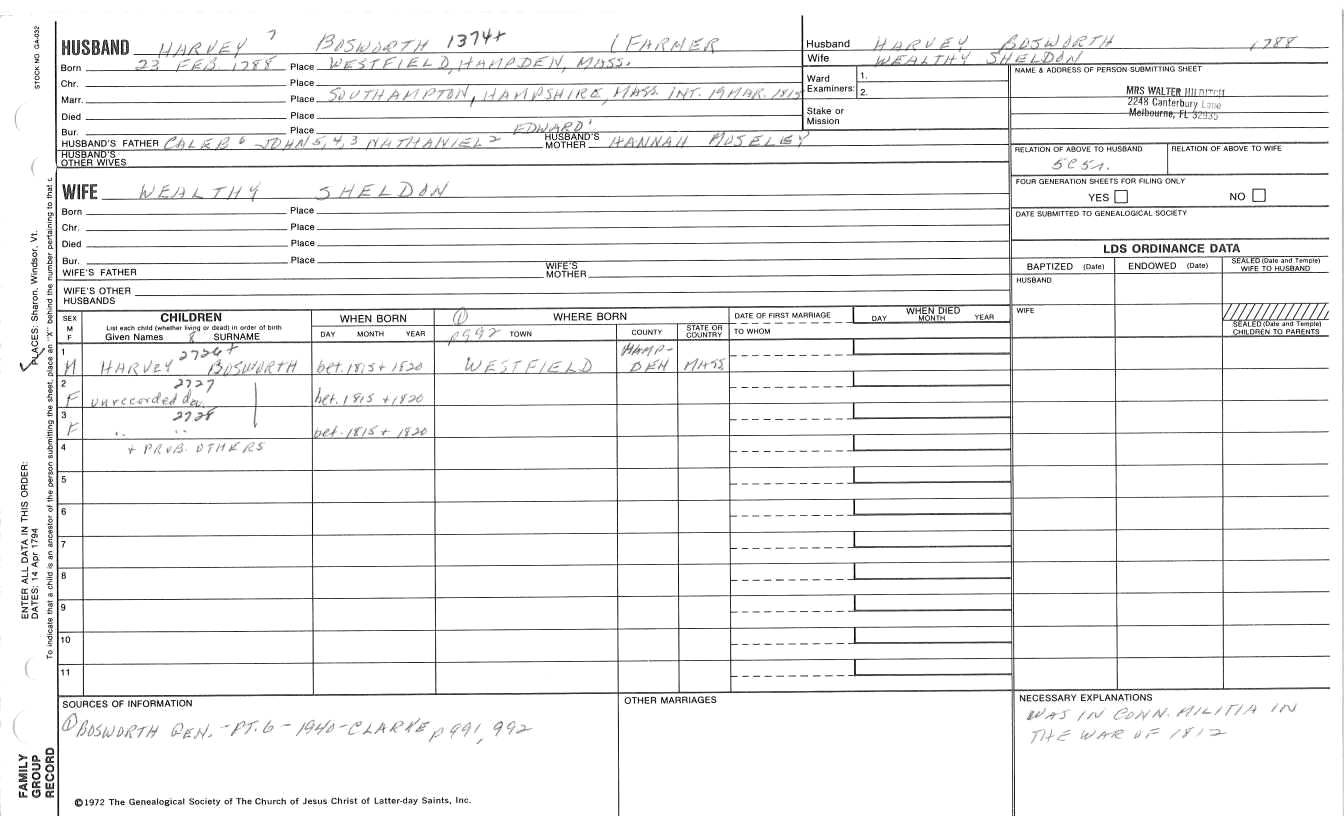 STOCK NO. GA-032
HUSBAND HARVEY 7 BOSWORTH 1374+ (FARMER
Born 23 FEB 1788 Place WESTFIELD, HAMPDEN, MASS.
Chr. Place
Marr. Place SOUTHAMPTON, HAMPSHIRE, MASS. INT. 19 MAR. 1815
Died Place
Bur. Place EDWARD'
HUSBAND'S FATHER CALEB 6 JOHN 5,4,3 NATHANIEL 2 HUSBAND'S MOTHER HANNAH MOSELEY
HUSBAND'S OTHER WIVES
Husband HARVEY BOSWORTH 1788
Wife WEALTHY SHELDON
Ward Examiners: 1.
2.
Stake or Mission
NAME & ADDRESS OF PERSON SUBMITTING SHEET
MRS WALTER HILDITCH
2248 Canterbury Lane
Melbourne, FL 32935
RELATION OF ABOVE TO HUSBAND RELATION OF ABOVE TO WIFE
5C5r.
FOUR GENERATION SHEETS FOR FILING ONLY
YES NO
DATE SUBMITTED TO GENEALOGICAL SOCIETY
WIFE WEALTHY SHELDON
Born Place
Chr. Place
Died Place
Bur. Place
WIFE'S FATHER WIFE'S MOTHER
WIFE'S OTHER HUSBANDS
LDS ORDINANCE DATA
BAPTIZED (Date) ENDOWED (Date) SEALED (Date and Temple) WIFE TO HUSBAND
HUSBAND
WIFE
SEALED (Date and Temple) CHILDREN TO PARENTS
SEX M F
CHILDREN
List each child (whether living or dead) in order of birth
Given Names 8 SURNAME
WHEN BORN
DAY MONTH YEAR
① WHERE BORN
p992 TOWN COUNTY STATE OR COUNTRY
DATE OF FIRST MARRIAGE
TO WHOM
WHEN DIED
DAY MONTH YEAR
1 2726+ HAMP-
M HARVEY BOSWORTH bet. 1815 + 1820 WESTFIELD DEN MASS
2 2727
F unrecorded dau. bet. 1815 + 1820
3 2728
F " " bet. 1815 + 1820
4 + PROB. OTHERS
5
6
7
8
9
10
11
SOURCES OF INFORMATION
① BOSWORTH GEN. - PT. 6 - 1940 - CLARKE p 991, 992
OTHER MARRIAGES
NECESSARY EXPLANATIONS
WAS IN CONN. MILITIA IN
THE WAR OF 1812
©1972 The Genealogical Society of The Church of Jesus Christ of Latter-day Saints, Inc.
FAMILY
GROUP
RECORD
ENTER ALL DATA IN THIS ORDER:
DATES: 14 Apr 1794
PLACES: Sharon, Windsor, Vt.
To indicate that a child is an ancestor of the person submitting the sheet, place an "X" behind the number pertaining to that c